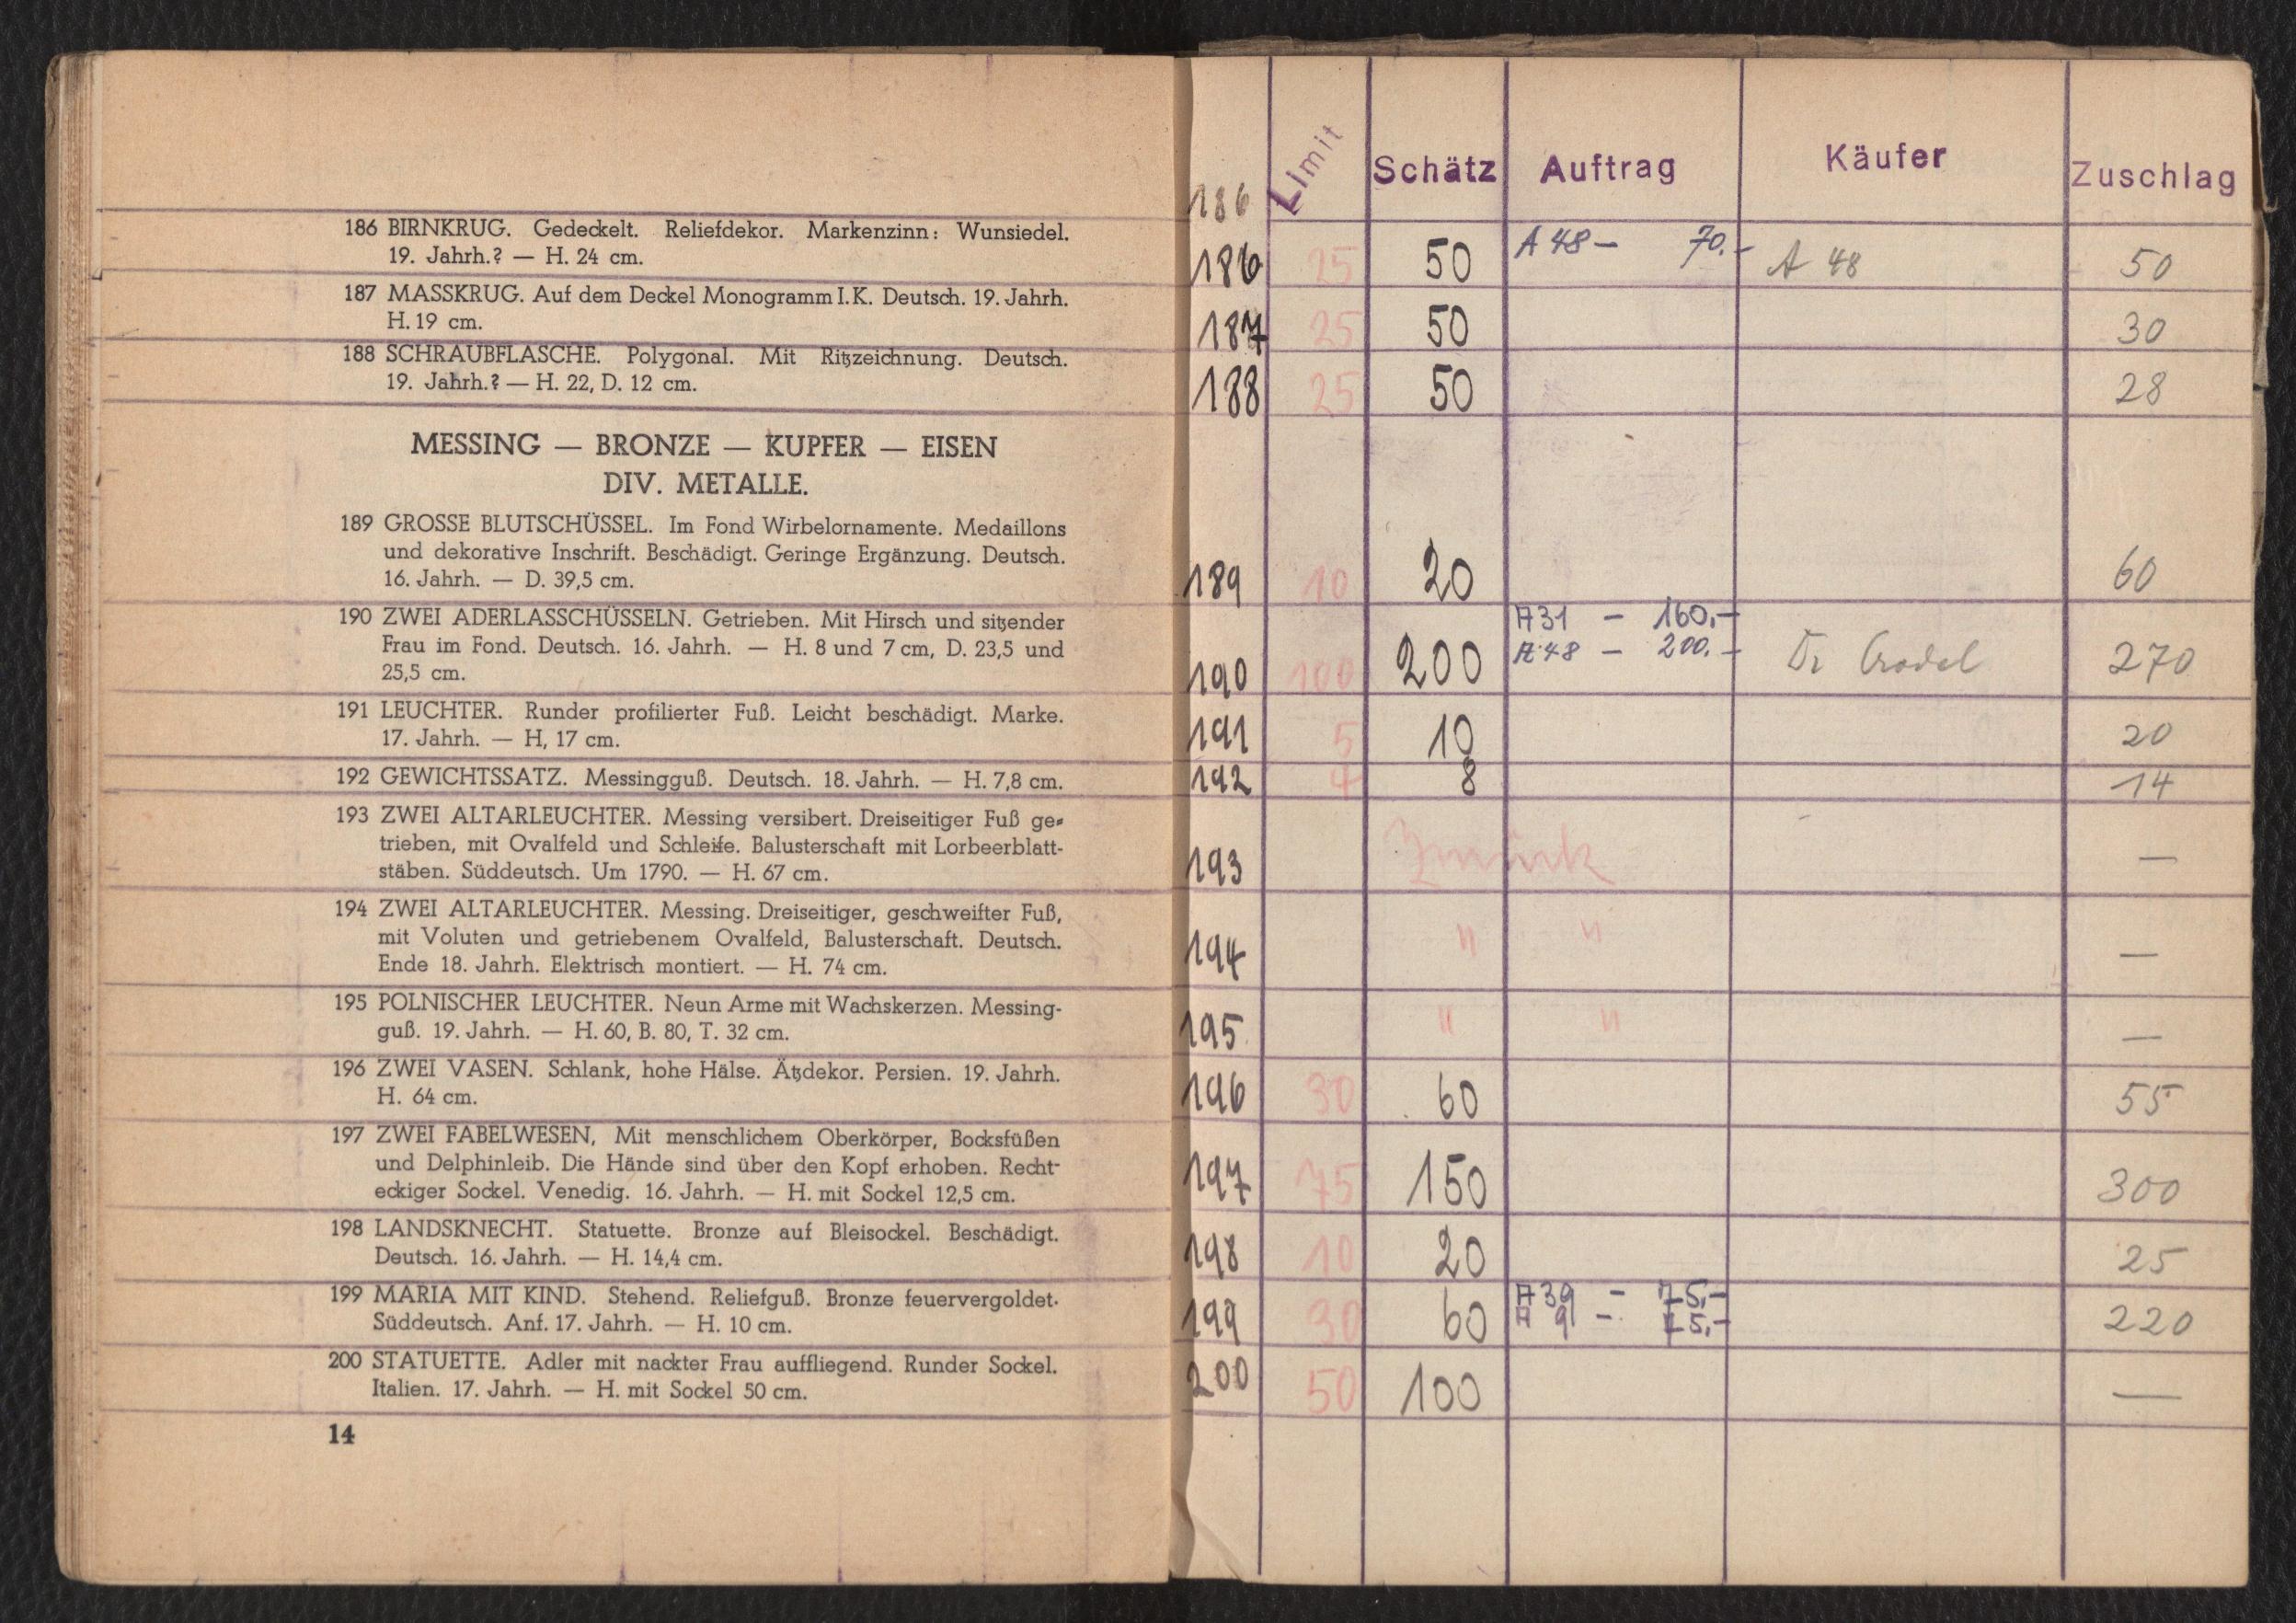 186 BIRNKRUG. Gedeckelt. Reliefdekor. Markenzinn: Wunsiedel.
19. Jahrh.? — H. 24 cm.
187 MASSKRUG. Auf dem Deckel Monogramm I.K. Deutsch. 19. Jahrh.
H. 19 cm.
188 SCHRAUBFLASCHE. Polygonal. Mit Ritzzeichnung. Deutsch.
19. Jahrh.? — H. 22, D. 12 cm.
MESSING — BRONZE — KUPFER — EISEN
DIV. METALLE.
189 GROSSE BLUTSCHÜSSEL. Im Fond Wirbelornamente. Medaillons
und dekorative Inschrift. Beschädigt. Geringe Ergänzung. Deutsch.
16. Jahrh. — D. 39,5 cm.
190 ZWEI ADERLASSCHÜSSELN. Getrieben. Mit Hirsch und sitzender
Frau im Fond. Deutsch. 16. Jahrh. — H. 8 und 7 cm, D. 23,5 und
25,5 cm.
191 LEUCHTER. Runder profilierter Fuß. Leicht beschädigt. Marke.
17. Jahrh. — H, 17 cm.
192 GEWICHTSSATZ. Messingguß. Deutsch. 18. Jahrh. — H. 7,8 cm.
193 ZWEI ALTARLEUCHTER. Messing versibert. Dreiseitiger Fuß ge-
trieben, mit Ovalfeld und Schleife. Balusterschaft mit Lorbeerblatt-
stäben. Süddeutsch. Um 1790. — H. 67 cm.
194 ZWEI ALTARLEUCHTER. Messing. Dreiseitiger, geschweifter Fuß,
mit Voluten und getriebenem Ovalfeld, Balusterschaft. Deutsch.
Ende 18. Jahrh. Elektrisch montiert. — H. 74 cm.
195 POLNISCHER LEUCHTER. Neun Arme mit Wachskerzen. Messing-
guß. 19. Jahrh. — H. 60, B. 80, T. 32 cm.
196 ZWEI VASEN. Schlank, hohe Hälse. Ätzdekor. Persien. 19. Jahrh.
H. 64 cm.
197 ZWEI FABELWESEN, Mit menschlichem Oberkörper, Bocksfüßen
und Delphinleib. Die Hände sind über den Kopf erhoben. Recht-
eckiger Sockel. Venedig. 16. Jahrh. — H. mit Sockel 12,5 cm.
198 LANDSKNECHT. Statuette. Bronze auf Bleisockel. Beschädigt.
Deutsch. 16. Jahrh. — H. 14,4 cm.
199 MARIA MIT KIND. Stehend. Reliefguß. Bronze feuervergoldet.
Süddeutsch. Anf. 17. Jahrh. — H. 10 cm.
200 STATUETTE. Adler mit nackter Frau auffliegend. Runder Sockel.
Italien. 17. Jahrh. — H. mit Sockel 50 cm.
14
186 Limit Schätz Auftrag Käufer Zuschlag
186 25 50 A 48 — 70.- A 48 50
187 25 50 30
188 25 50 28
189 10 20 60
A31 — 160.-
190 100 200 A 48 — 200.- Dr 270
191 5 10 20
192 4 8 14
193 Zurück —
194 " " —
195 " " —
196 30 60 55
197 75 150 300
198 10 20 25
A 39 — 75.-
199 30 60 A 91 — 75.- 220
200 50 100 —